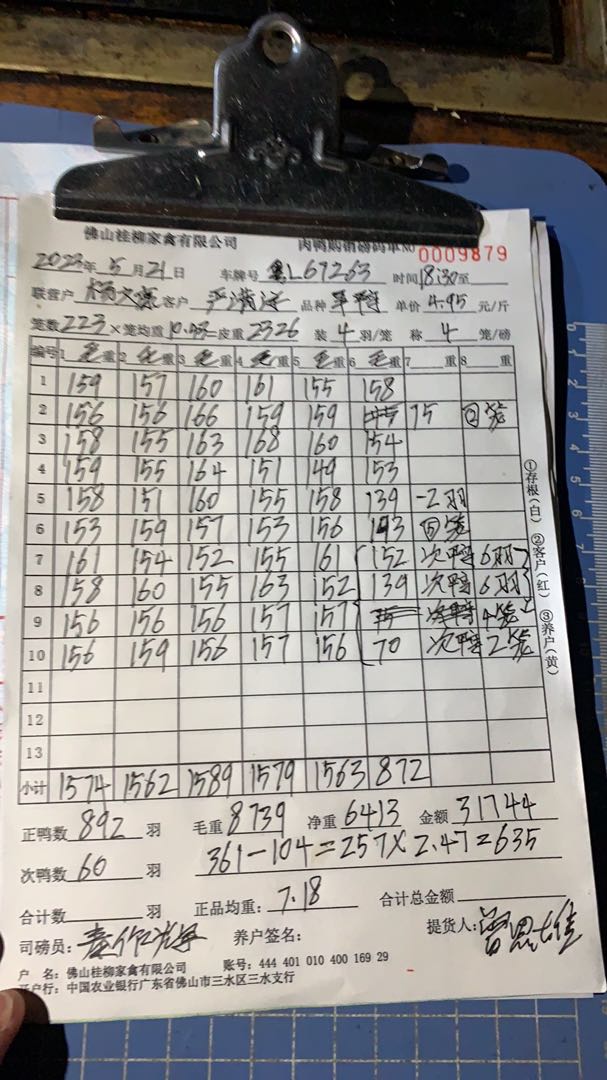 佛山桂柳家禽有限公司 肉鸭购销磅码单NO 0009879
2023年 5月21日 车牌号 粤L69263 时间18:30至
联营户 客户 品种 单价 4.95 元/斤
笼数223×笼均重10.43=皮重2326 装 4 羽/笼 称 4 笼/磅
编号 1毛重 2毛重 3毛重 4毛重 5毛重 6毛重 7 重 8 重
1 159 157 160 161 155 158
2 156 156 166 159 159 75 回笼
3 158 155 163 168 160 154
4 159 155 164 151 149 153
5 158 151 160 155 158 139 -2羽
6 153 159 157 153 156 143 回笼
7 161 154 152 155 161 152 次鸭 6羽
8 158 160 155 163 152 139 次鸭 6羽
9 156 156 156 157 157 次鸭 4笼
10 156 159 156 157 156 70 次鸭 2笼
11
12
13
小计 1574 1562 1589 1579 1563 872
正鸭数 892 羽 毛重 8739 净重 6413 金额 31744
次鸭数 60 羽 361-104=257×2.47=635
合计数 羽 正品均重: 7.18 合计总金额
司磅员: 养户签名: 提货人:
户 名: 佛山桂柳家禽有限公司 账号: 444 401 010 400 169 29
开户行: 中国农业银行广东省佛山市三水区三水支行
①存根(白) ②客户(红) ③养户(黄)